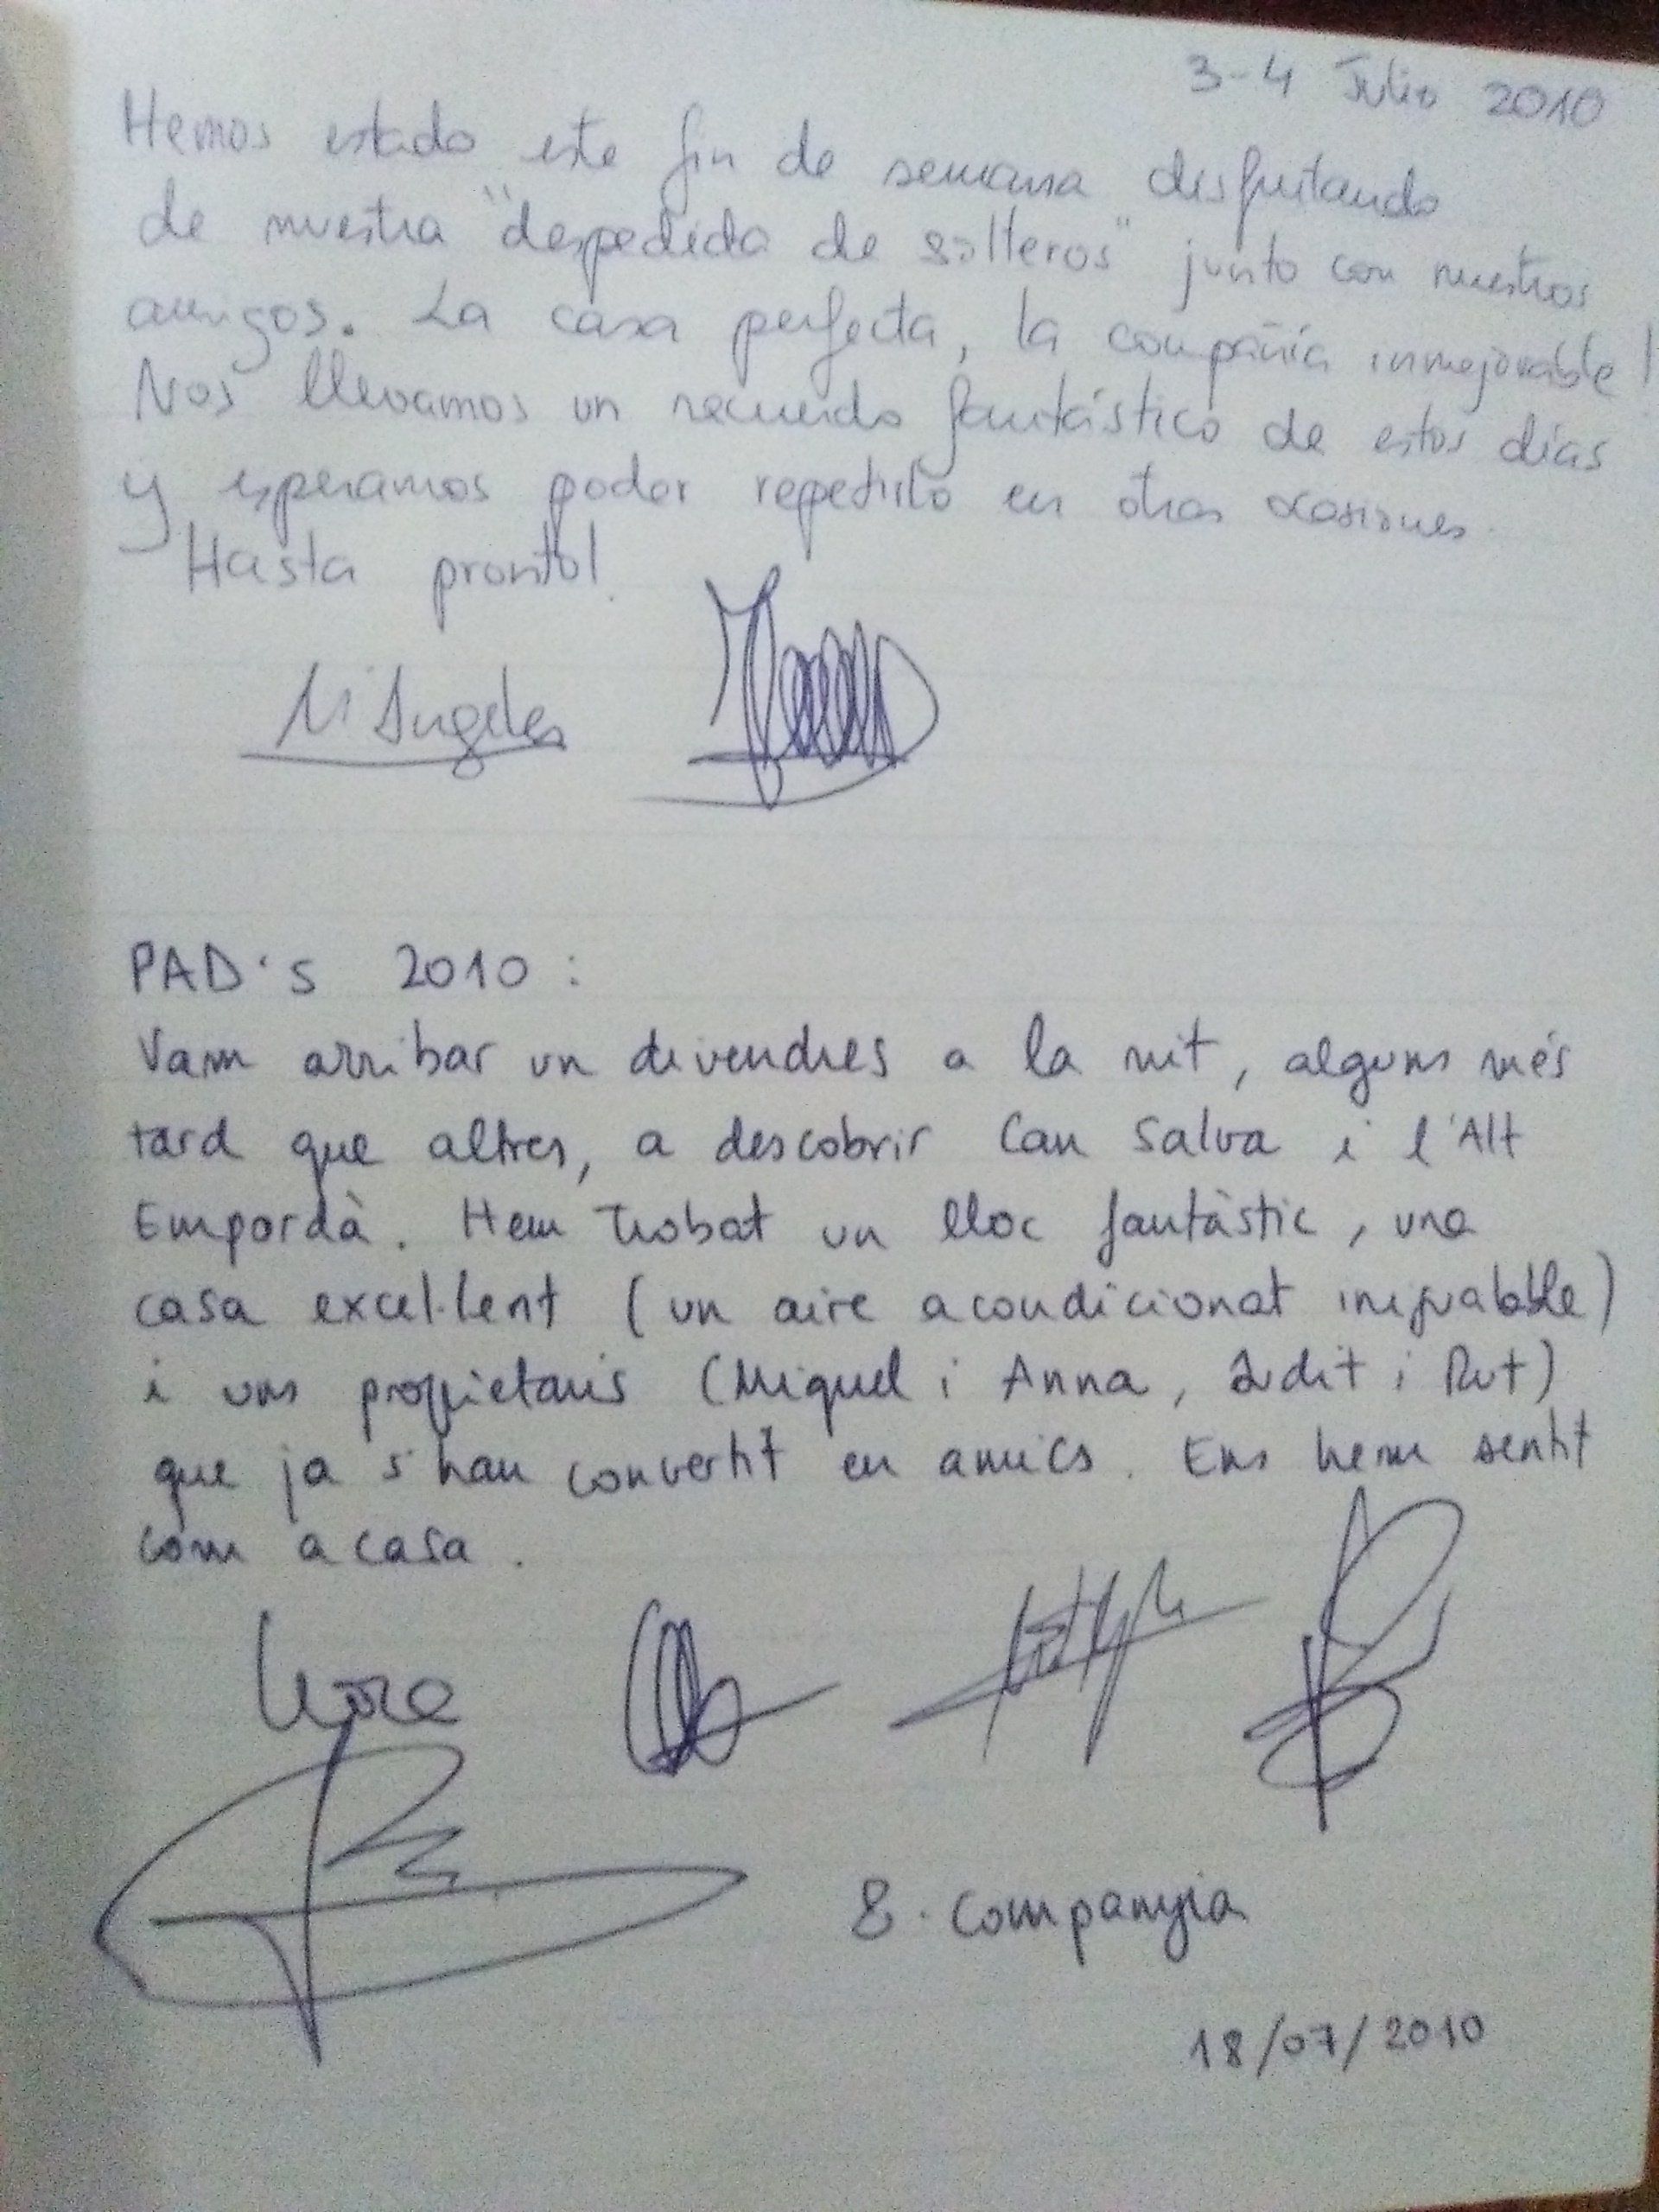 3-4 Julio 2010
Hemos estado este fin de semana disfrutando
de nuestra "despedida de solteros" junto con nuestros
amigos. La casa perfecta, la compañía inmejorable!
Nos llevamos un recuerdo fantástico de estos días
y esperamos poder repetirlo en otras ocasiones.
Hasta pronto!
Mª Angeles
PAD's 2010:
Vam arribar un divendres a la nit, alguns més
tard que altres, a descobrir Can Salva i l'Alt
Empordà. Hem trobat un lloc fantàstic, una
casa excel·lent (un aire acondicionat inigualable)
i uns propietaris (Miquel i Anna, Judit i Rut)
que ja s'han convertit en amics. Ens hem sentit
com a casa.
& companyia
18/07/2010